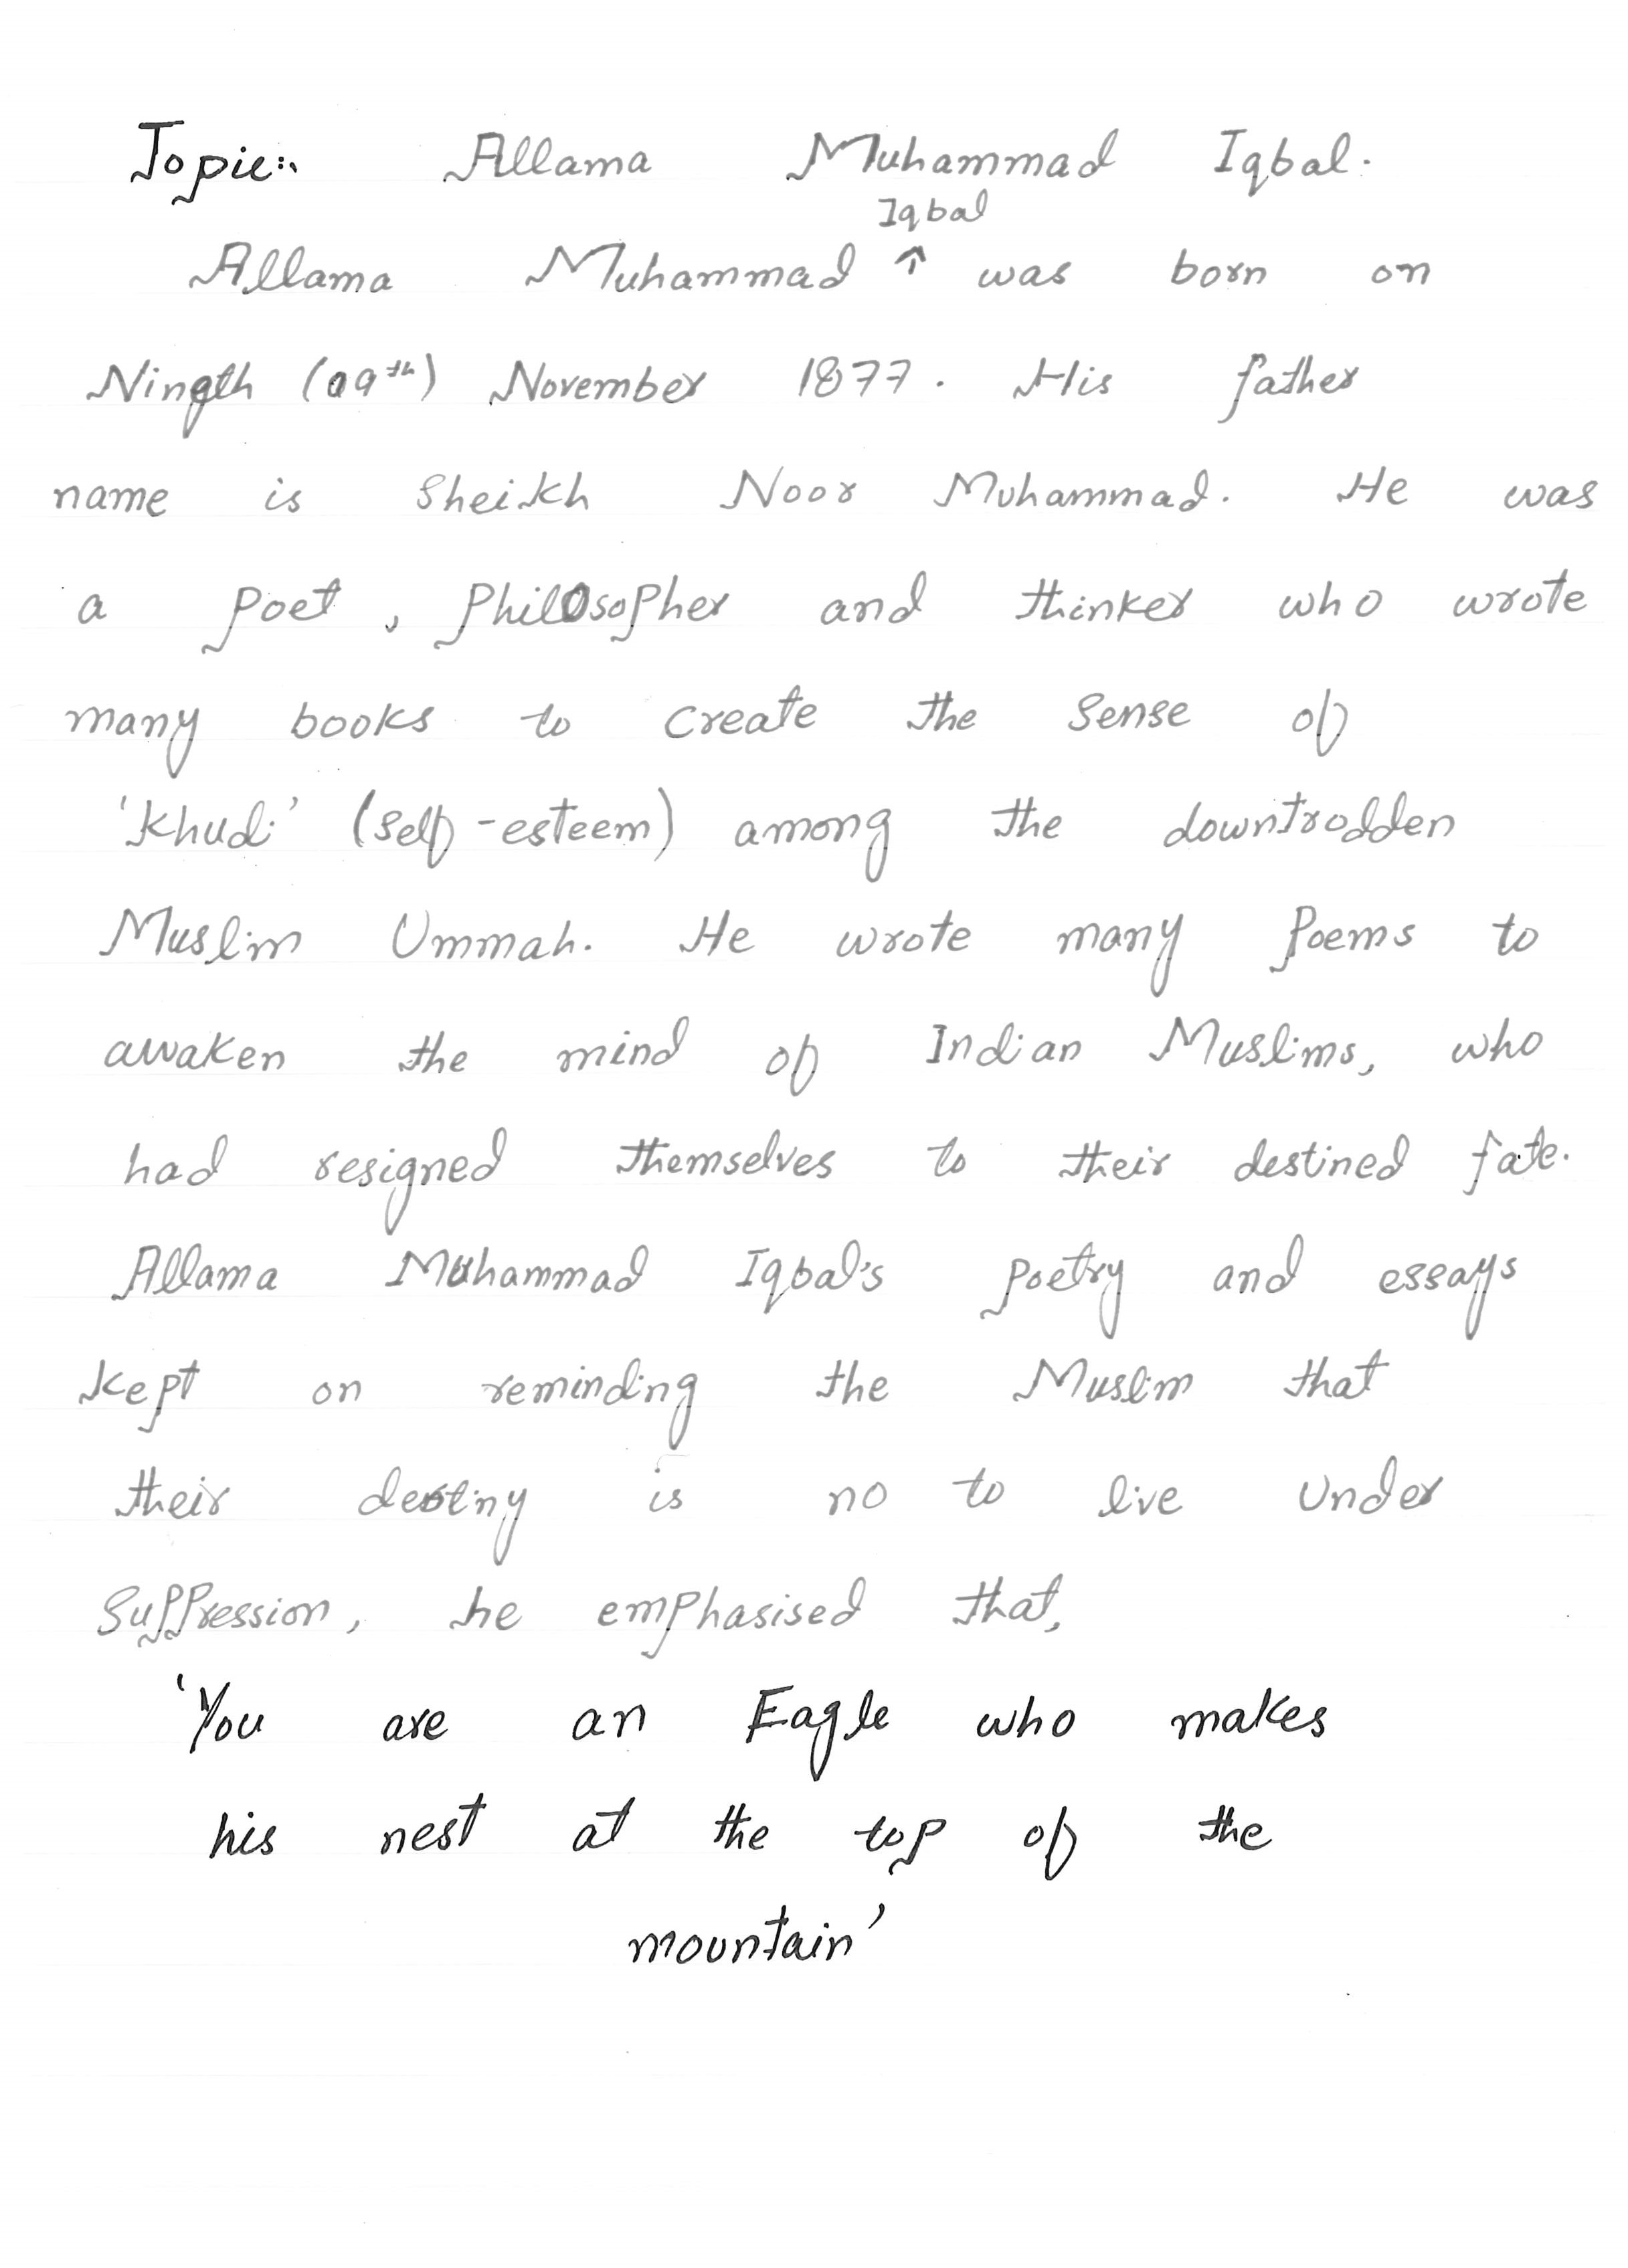 Topic:. Allama Muhammad Iqbal.
Iqbal
Allama Muhammad ↑ was born on
Ningth (09th) November 1877. His father
name is Sheikh Noor Muhammad. He was
a poet, philosopher and thinker who wrote
many books to create the sense of
'Khudi' (self-esteem) among the downtrodden
Muslim Ummah. He wrote many Poems to
awaken the mind of Indian Muslims, who
had resigned themselves to their destined fate.
Allama Muhammad Iqbal's poetry and essays
kept on reminding the Muslim that
their destiny is no to live under
Suppression, he emphasised that,
'You are an Eagle who makes
his nest at the top of the
mountain'